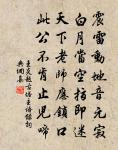 震雷動地音元寂
白月當空指即迷
天下老師應鎖口
此公不肯止兒啼